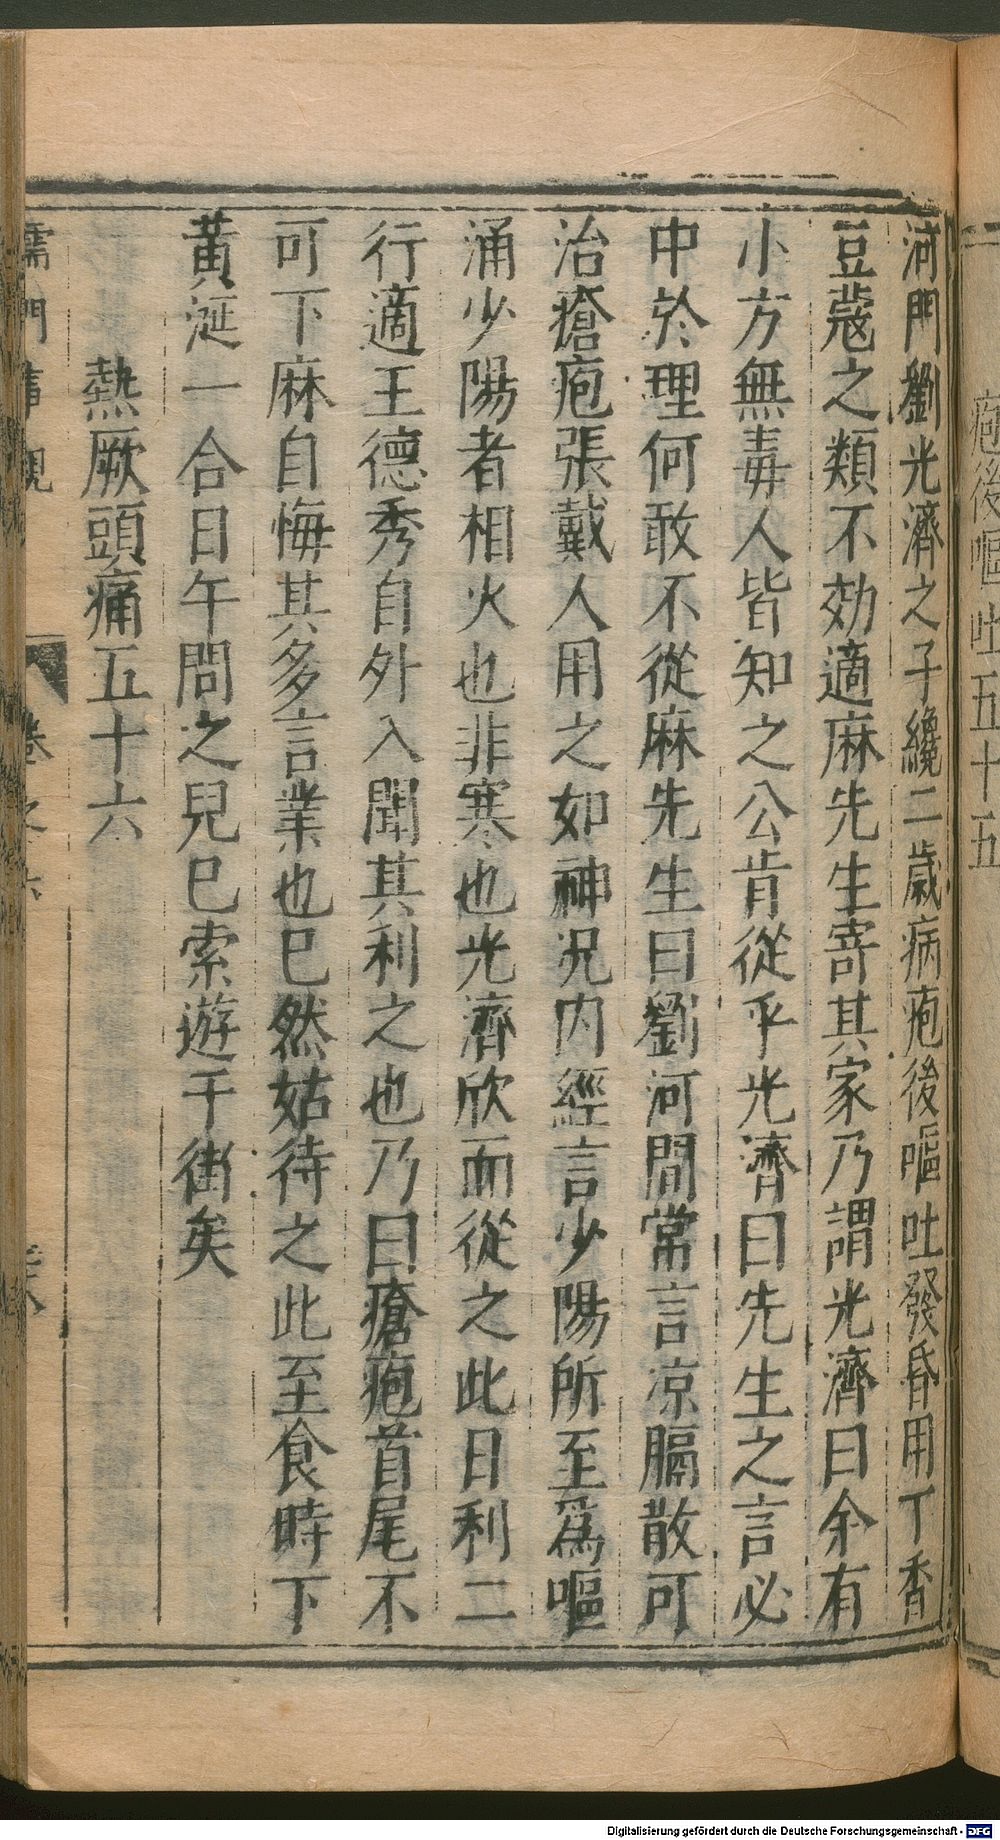 疱後嘔吐五十五
河門劉光濟之子纔二歳病疱後嘔吐發昏用丁香
豆蔻之類不効適麻先生寄其家乃謂光濟曰余有
小方無毒人皆知之公肯從乎光濟曰先生之言必
中於理何敢不從麻先生曰劉河間常言凉膈散可
治瘡疱張戴人用之如神况内經言少陽所至爲嘔
涌少陽者相火也非寒也光濟欣而從之此日利二
行適王德秀自外入聞其利之也乃曰瘡疱首尾不
可下麻自悔其多言業也已然姑待之此至食時下
黃涎一合日午問之兒已索遊于街矣
熱厥頭痛五十六
儒門事親 卷之六
Digitalisierung gefördert durch die Deutsche Forschungsgemeinschaft - DFG